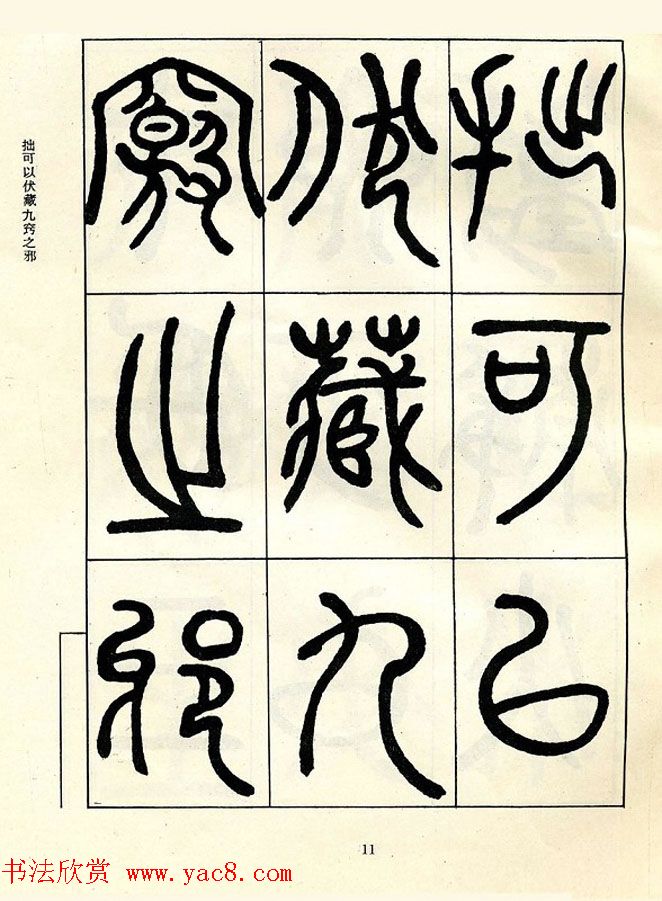 拙可以
伏藏九
竅之邪
拙可以伏藏九窍之邪
11
书法欣赏 www.yac8.com